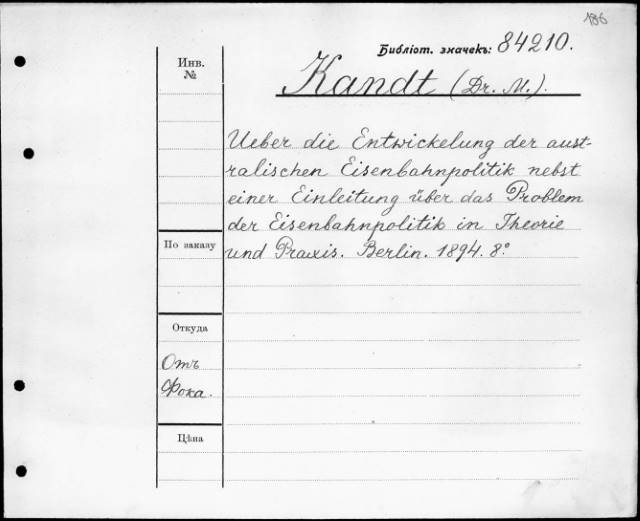 186
Библіот. значекъ: 84210.
Инв.
№
Kandt (Dr. M.).
Ueber die Entwickelung der aust-
ralischen Eisenbahnpolitik nebst
einer Einleitung über das Problem
der Eisenbahnpolitik in Theorie
По заказу
und Praxis. Berlin. 1894. 8º
Откуда
Отъ
Фока.
Цѣна